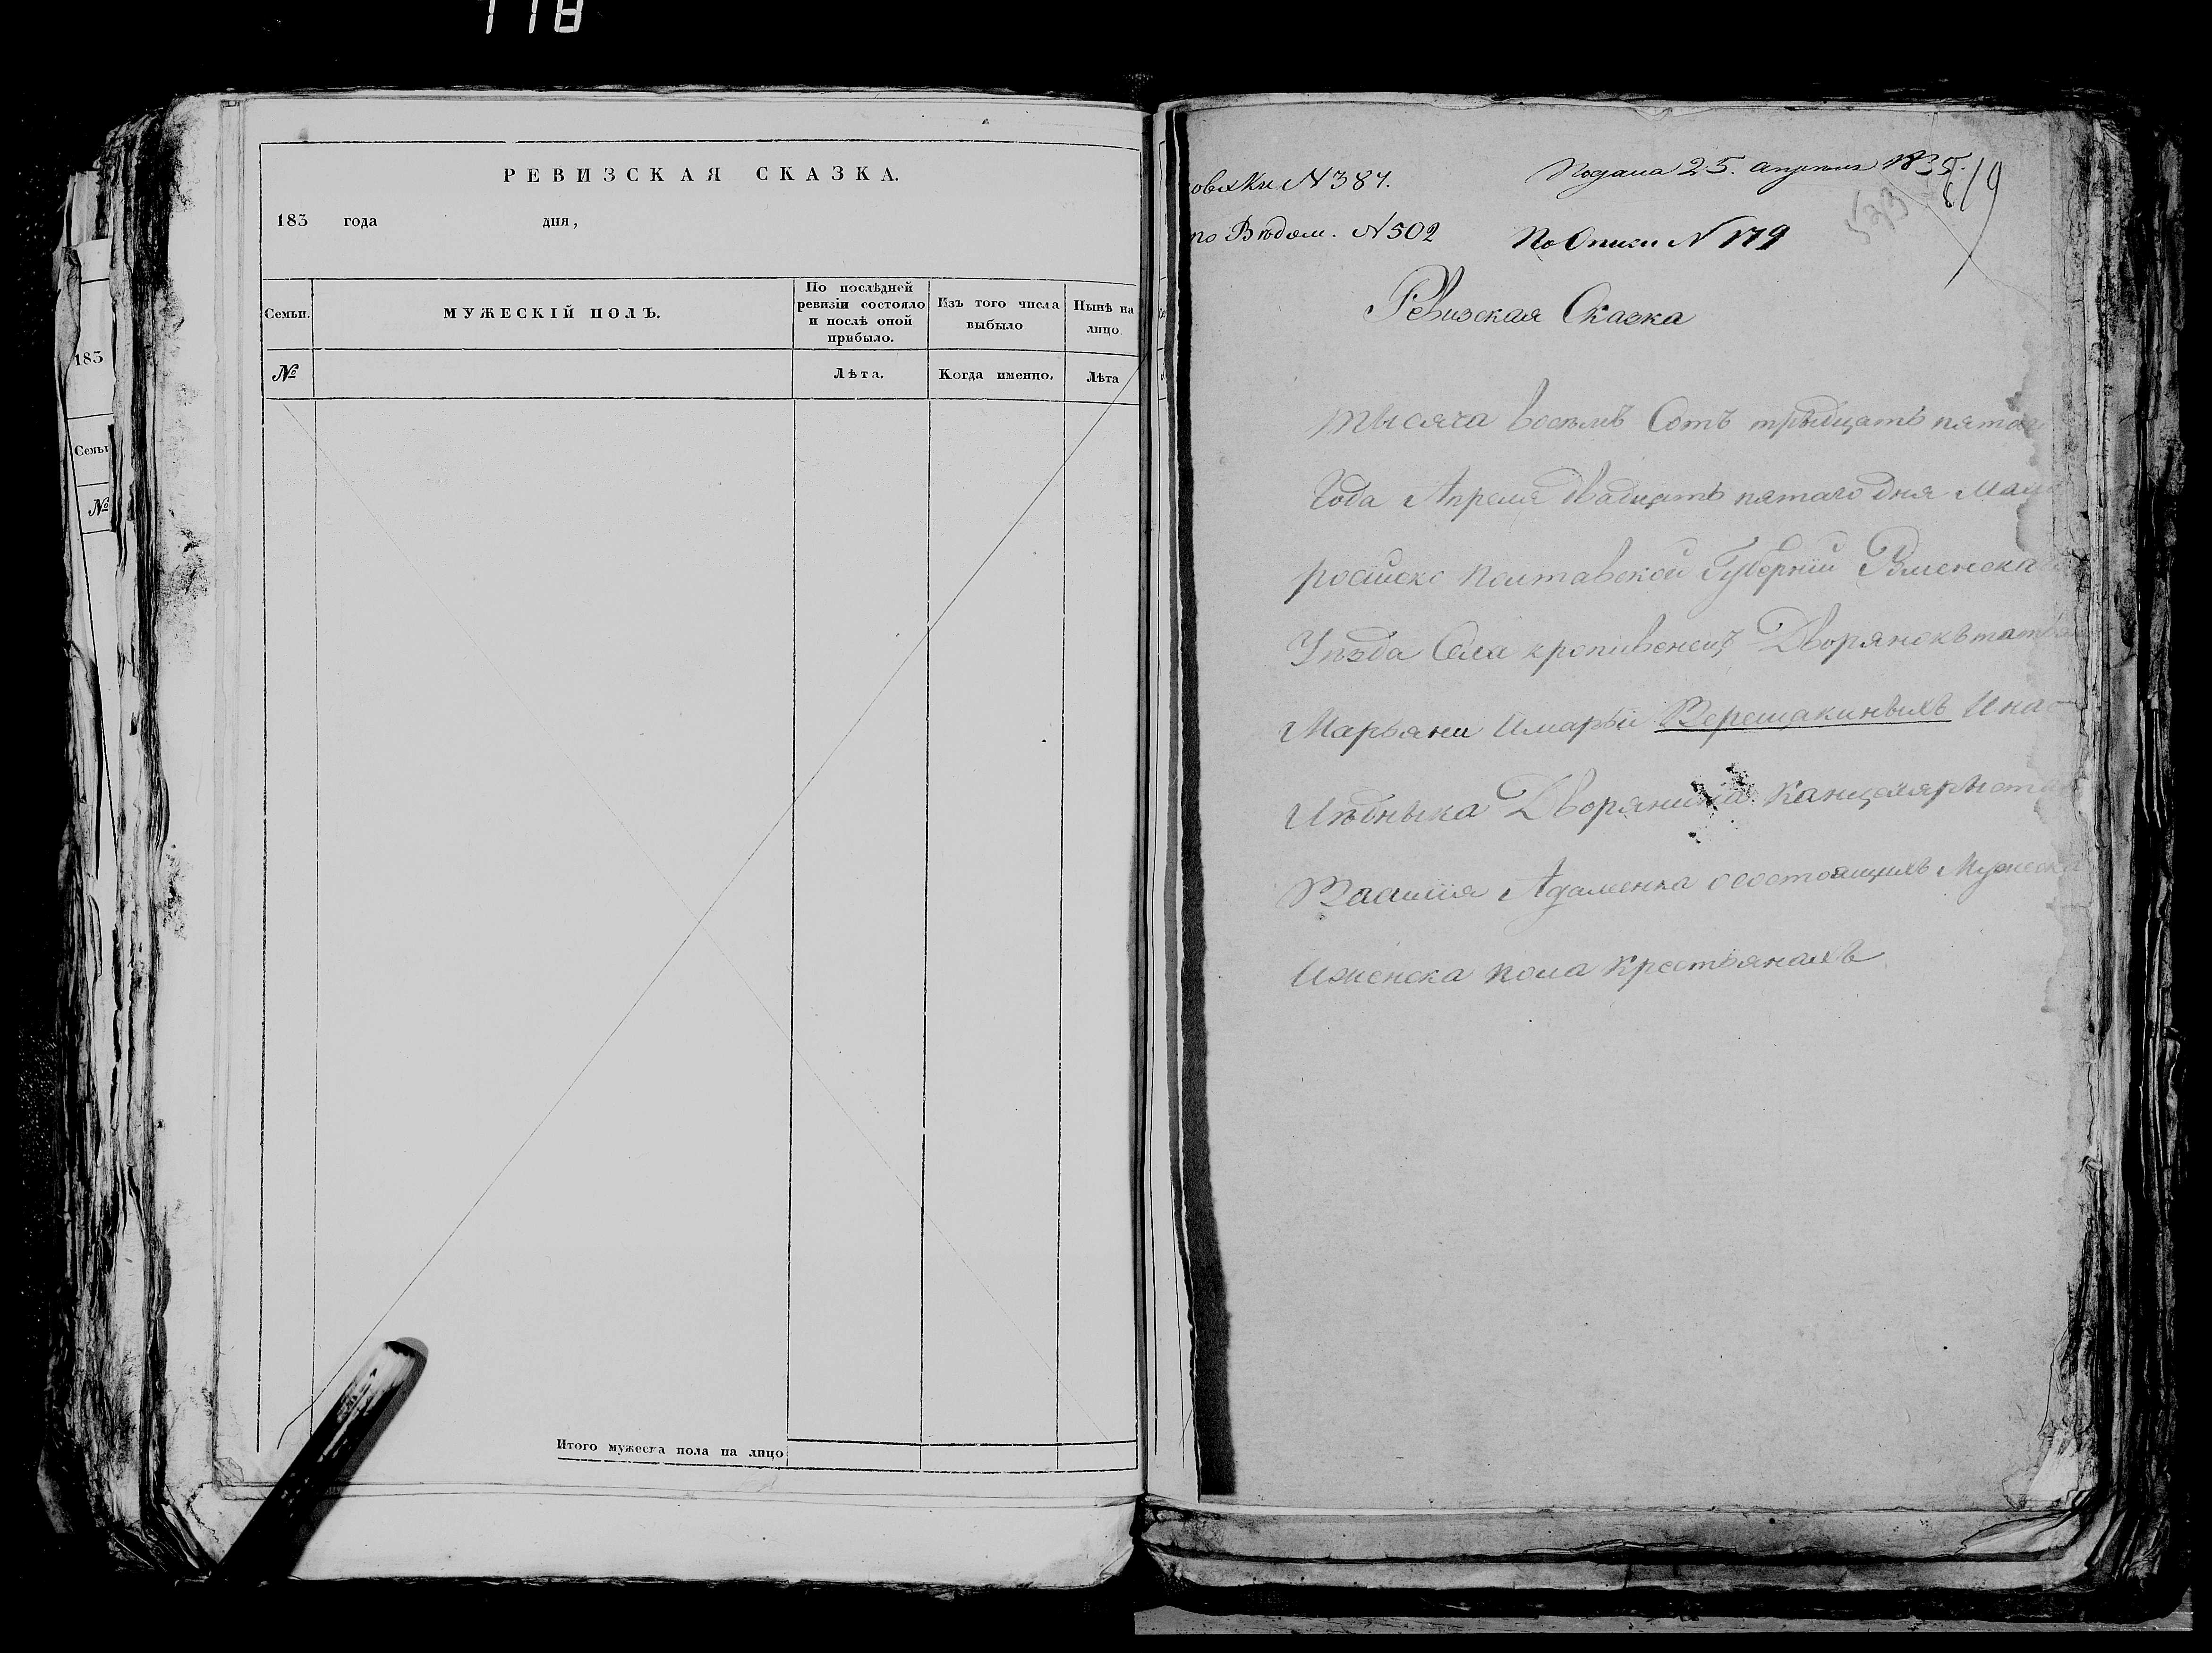 118
РЕВИЗСКАЯ СКАЗКА.
183 года дня,
Семьи.
МУЖЕСКІЙ ПОЛЪ.
По послѣдней ревизіи состояло и послѣ оной прибыло.
Изъ того числа выбыло
Нынѣ на лицо.
№
Лѣта.
Когда именно.
Лѣта
Итого мужеска пола на лицо
183
Семьи
№
Подана 25. апреля 1835.
619
523
N 387.
по Вѣдом. N 502
По Описи N 179
Ревизская Сказка
тысяча восемъ Сотъ трыдцать пятаго
Года Апреля двадцать пятаго дня Мало
російско полтавской Губерніи Роменска
Уѣзда Села кропивенец Дворянокъ
Марьяни Имарьи Верещакиныхъ Инас
Лѣдныка Дворянина Канцеляриста
Василія Адаменка осостоящихъ Мужеска
Иженска пола Крестьянахъ